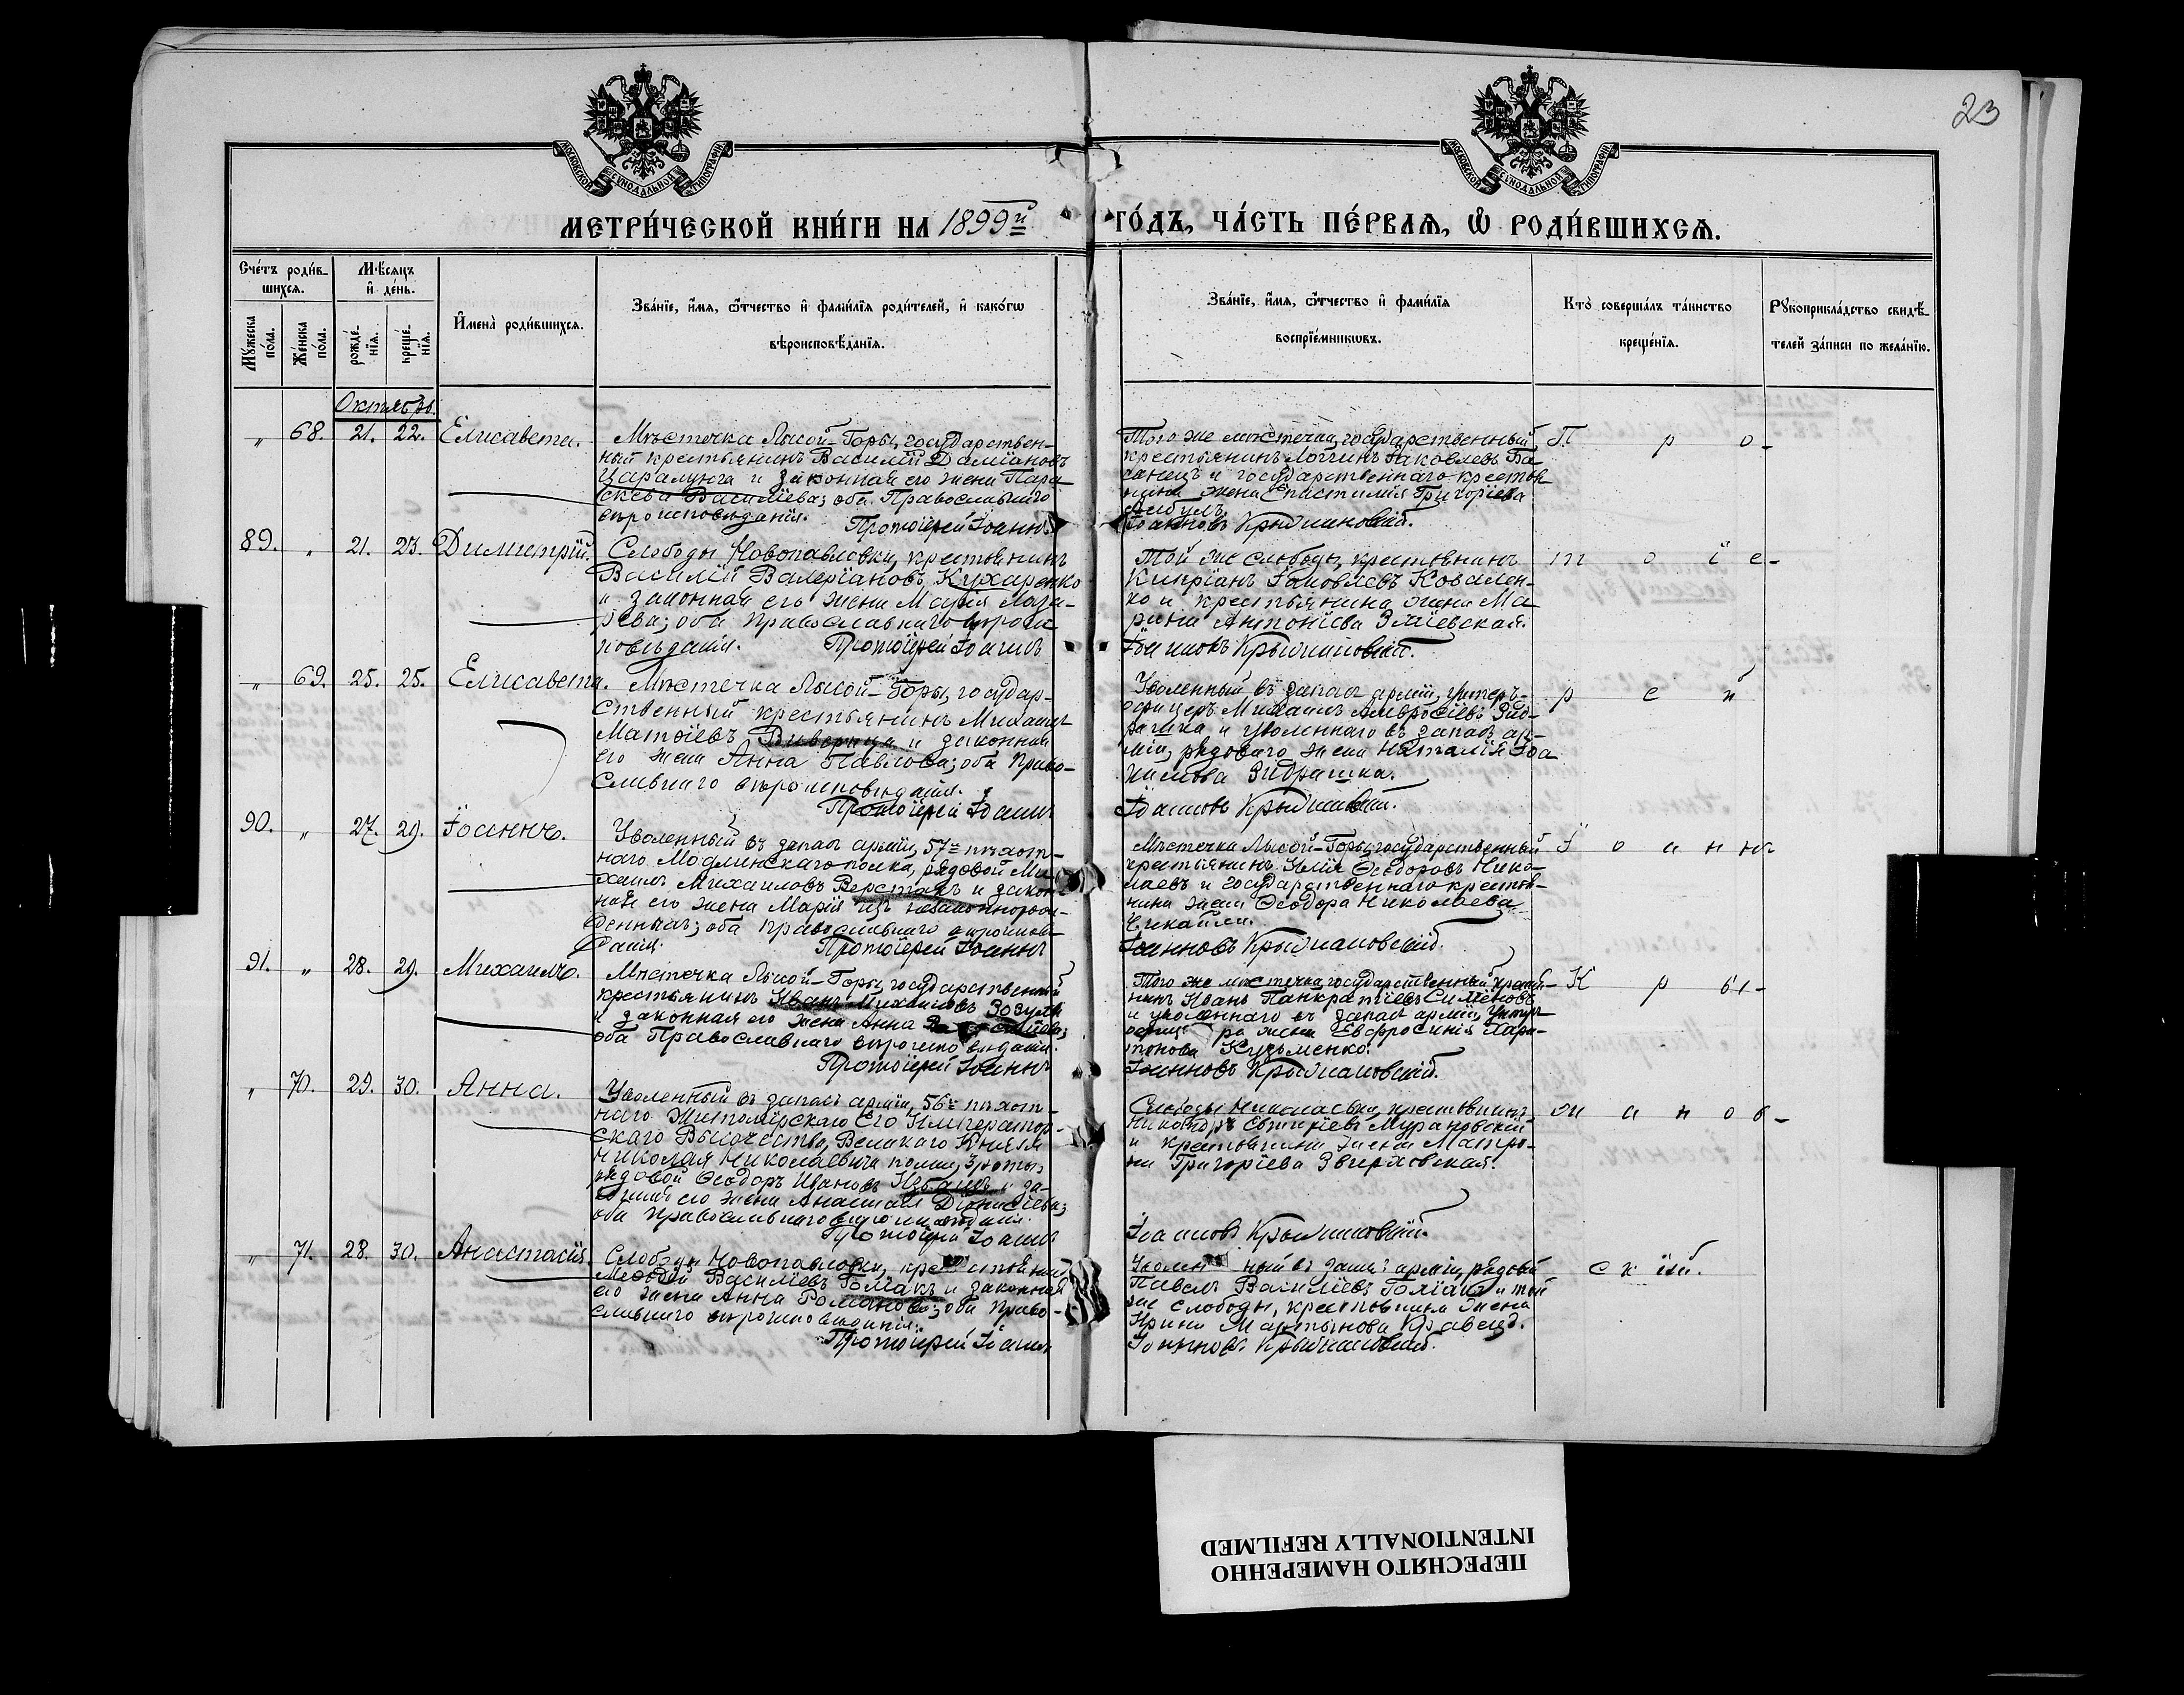 23
МОСКОВСКОЙ СУНОДАЛЬНОЙ ТИПОГРАФІИ
МОСКОВСКОЙ СУНОДАЛЬНОЙ ТИПОГРАФІИ
МЕТРИ́ЧЕСКОЙ КНИ́ГИ НА 1899й
ГО́ДЪ, ЧА́СТЬ ПЕ́РВАѦ, Ѡ РОДИ́ВШИХСѦ.
Сче́тъ роди́в-
шихся.
Мѣ́сяцъ
и де́нь.
Мꙋ́жеска
по́ла.
Же́нска
по́ла.
рожде́-
нїя.
креще́-
нїя.
И҆мена̀ роди́вшихся.
Зва́нїе, и҆́мя, ѻ҆́тчество и҆ фами́лїя роди́телей, и҆ како́гѡ
вѣроисповѣ́данїя.
Зва́нїе, и҆́мя, ѻ҆́тчество и҆ фами́лїя
воспрїе́мникѡвъ.
Кто̀ соверша́лъ та́инство
креще́нїя.
Рꙋкоприкла́дство свидѣ́-
телей за́писи по жела́нїю.
Октябрь.
„ 68. 21. 22. Елисавета.
Мѣстечка Лысой-Горы, государствен-
ный крестьянинъ Василій Даміановъ
и законная его жена Пара-
скева Василіева; оба Православнаго
вѣроисповѣданія.
Протоіерей Іоаннъ
Того же мѣстечка, государственный
крестьянинъ Логгинъ Іаковлевъ Ба-
и государственнаго крестья-
нина жена Епистимія Григоріева
Іоанновъ Крыжановскій.
П р о-
89. „ 21. 23. Димитрій.
Слободы Новопавловки, крестьянинъ
Василій Валеріановъ Кухаренко
и законная его жена Марія Лаза-
рева; оба Православнаго вѣроис-
повѣданія. Протоіерей Іоаннъ
Той же слободы, крестьянинъ
Кипріанъ Іаковлевъ Ковален-
ко и крестьянина жена Ма-
рина Антоніева Зміевская.
Іоанновъ Крыжановскій.
т о і е-
„ 69. 25. 25. Елисавета.
Мѣстечка Лысой-Горы, государ-
ственный крестьянинъ Михаилъ
Матѳіевъ и законная
его жена Анна Павлова; оба Право-
славнаго вѣроисповѣданія.
Протоіерей Іоаннъ
Уволенный въ запасъ арміи, унтеръ-
офицеръ Михаилъ Амвросіевъ Зад-
и уволеннаго въ запасъ ар-
міи, рядоваго жена Наталія Іоа-
кимова
Іоанновъ Крыжановскій.
р е й
90. „ 27. 29. Іоаннъ.
Уволенный въ запасъ арміи, 57го пѣхот-
наго Модлинскаго полка, рядовой Ми-
хаилъ Михаиловъ Верстакъ и закон-
ная его жена Марія изъ незаконнорож-
денныхъ; оба Православнаго
Протоіерей Іоаннъ
Мѣстечка Лысой-Горы, государственный
крестьянинъ Илія Ѳеодоровъ Нико-
лаевъ и государственнаго крестья-
нина жена Ѳеодора Николаева
Іоанновъ Крыжановскій.
І о а н нъ
91. „ 28. 29. Михаилъ.
Мѣстечка Лысой-Горы, государственный
крестьянинъ Иванъ Михаиловъ Зозуля
и законная его жена Анна
оба Православнаго вѣроисповѣданія.
Протоіерей Іоаннъ
Того же мѣстечка, государственный крестья-
нинъ Иванъ Панкратіевъ Симеоновъ
и уволеннаго въ запасъ арміи, унтеръ
офицера жена Евфросинія Хари-
тонова Кузьменко.
Іоанновъ Крыжановскій.
К р ы-
„ 70. 29. 30. Анна.
Уволенный въ запасъ арміи, 56го пѣхот-
наго Житомірскаго Его Император-
скаго Высочества, Великаго Князя
Николая Николаевича полка, 3 роты,
рядовой Ѳеодоръ Ивановъ и за-
конная его жена Анастасія Діонисіева;
оба Православнаго вѣроисповѣданія.
Протоіерей Іоаннъ
Слободы Николаевки, крестьянинъ
Никандръ Мурановскій
и крестьянина жена Матро-
на Григоріева Зверховская.
Іоанновъ Крыжановскій.
ж а н о в-
„ 71. 28. 30. Анастасія.
Слободы Новопавловки, крестьянинъ
Меѳодій Василіевъ Голіакъ и законная
его жена Анна Романова; оба Право-
славнаго вѣроисповѣданія.
Протоіерей Іоаннъ
Уволенный въ запасъ арміи, рядовой
Павелъ Василіевъ Голіакъ и той
же слободы, крестьянина жена
Ирина Мартынова Кравецъ.
Іоанновъ Крыжановскій.
с к ій.
ПЕРЕСНЯТО НАМЕРЕННО
INTENTIONALLY REFILMED